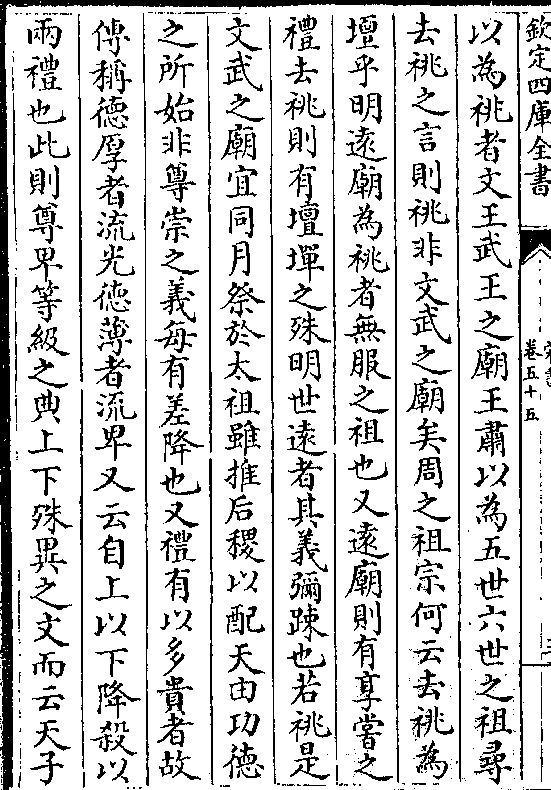 欽定四庫全書
卷五十五
以為祧者文王武王之廟王肅以為五世六世之祖尋
去祧之言則祧非文武之廟矣周之祖宗何云去祧為
壇乎明遠廟為祧者無服之祖也又遠廟則有享嘗之
禮去祧則有壇墠之殊明世遠者其義彌踈也若祧是
文武之廟宜同月祭於太祖雖推后稷以配天由功德
之所始非尊崇之義每有差降也又禮有以多貴者故
傳稱德厚者流光德薄者流卑又云自上以下降殺以
兩禮也此則尊卑等級之典上下殊異之文而云天子